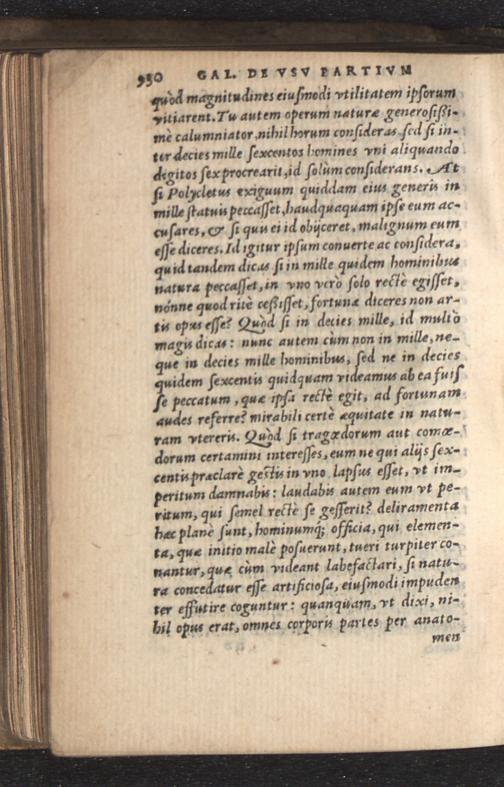 930 GAL. DE VSV PARTIVM
quòd magnitudines eiusmodi vtilitatem ipsorum
vitiarent. Tu autem operum naturæ generosißi-
mè calumniator, nihil horum consideras, sed si in-
ter decies mille sexcentos homines vni aliquando
digitos sex procrearit, id solùm considerans. At
si Polycletus exiguum quiddam eius generis in
mille statuis peccasset, haudquaquam ipse eum ac-
cusares, & si quis ei id obijceret, malignum eum
esse diceres. Id igitur ipsum conuerte ac considera,
quid tandem dicas si in mille quidem hominibus
natura peccasset, in vno verò solo rectè egisset,
nónne quod ritè ceßisset, fortunæ diceres non ar-
tis opus esse? Quòd si in decies mille, id multò
magis dicas: nunc autem cùm non in mille, ne-
que in decies mille hominibus, sed ne in decies
quidem sexcentis quidquam videamus ab ea fuis
se peccatum, quæ ipsa rectè egit, ad fortunam
audes referre? mirabili certè æquitate in natu-
ram vtereris. Quòd si tragœdorum aut comœ-
dorum certamini interesses, eum ne qui alijs sex-
centis præclarè gestis in vno lapsus esset, vt im-
peritum damnabis: laudabis autem eum vt pe-
ritum, qui semel rectè se gesserit? deliramenta
hæc planè sunt, hominumq; officia, qui elemen-
ta, quæ initio malè posuerunt, tueri turpiter co-
nantur, quæ cùm videant labefactari, si natu-
ra concedatur esse artificiosa, eiusmodi impuden
ter effutire coguntur: quanquam, vt dixi, ni-
hil opus erat, omnes corporis partes per anato-
men